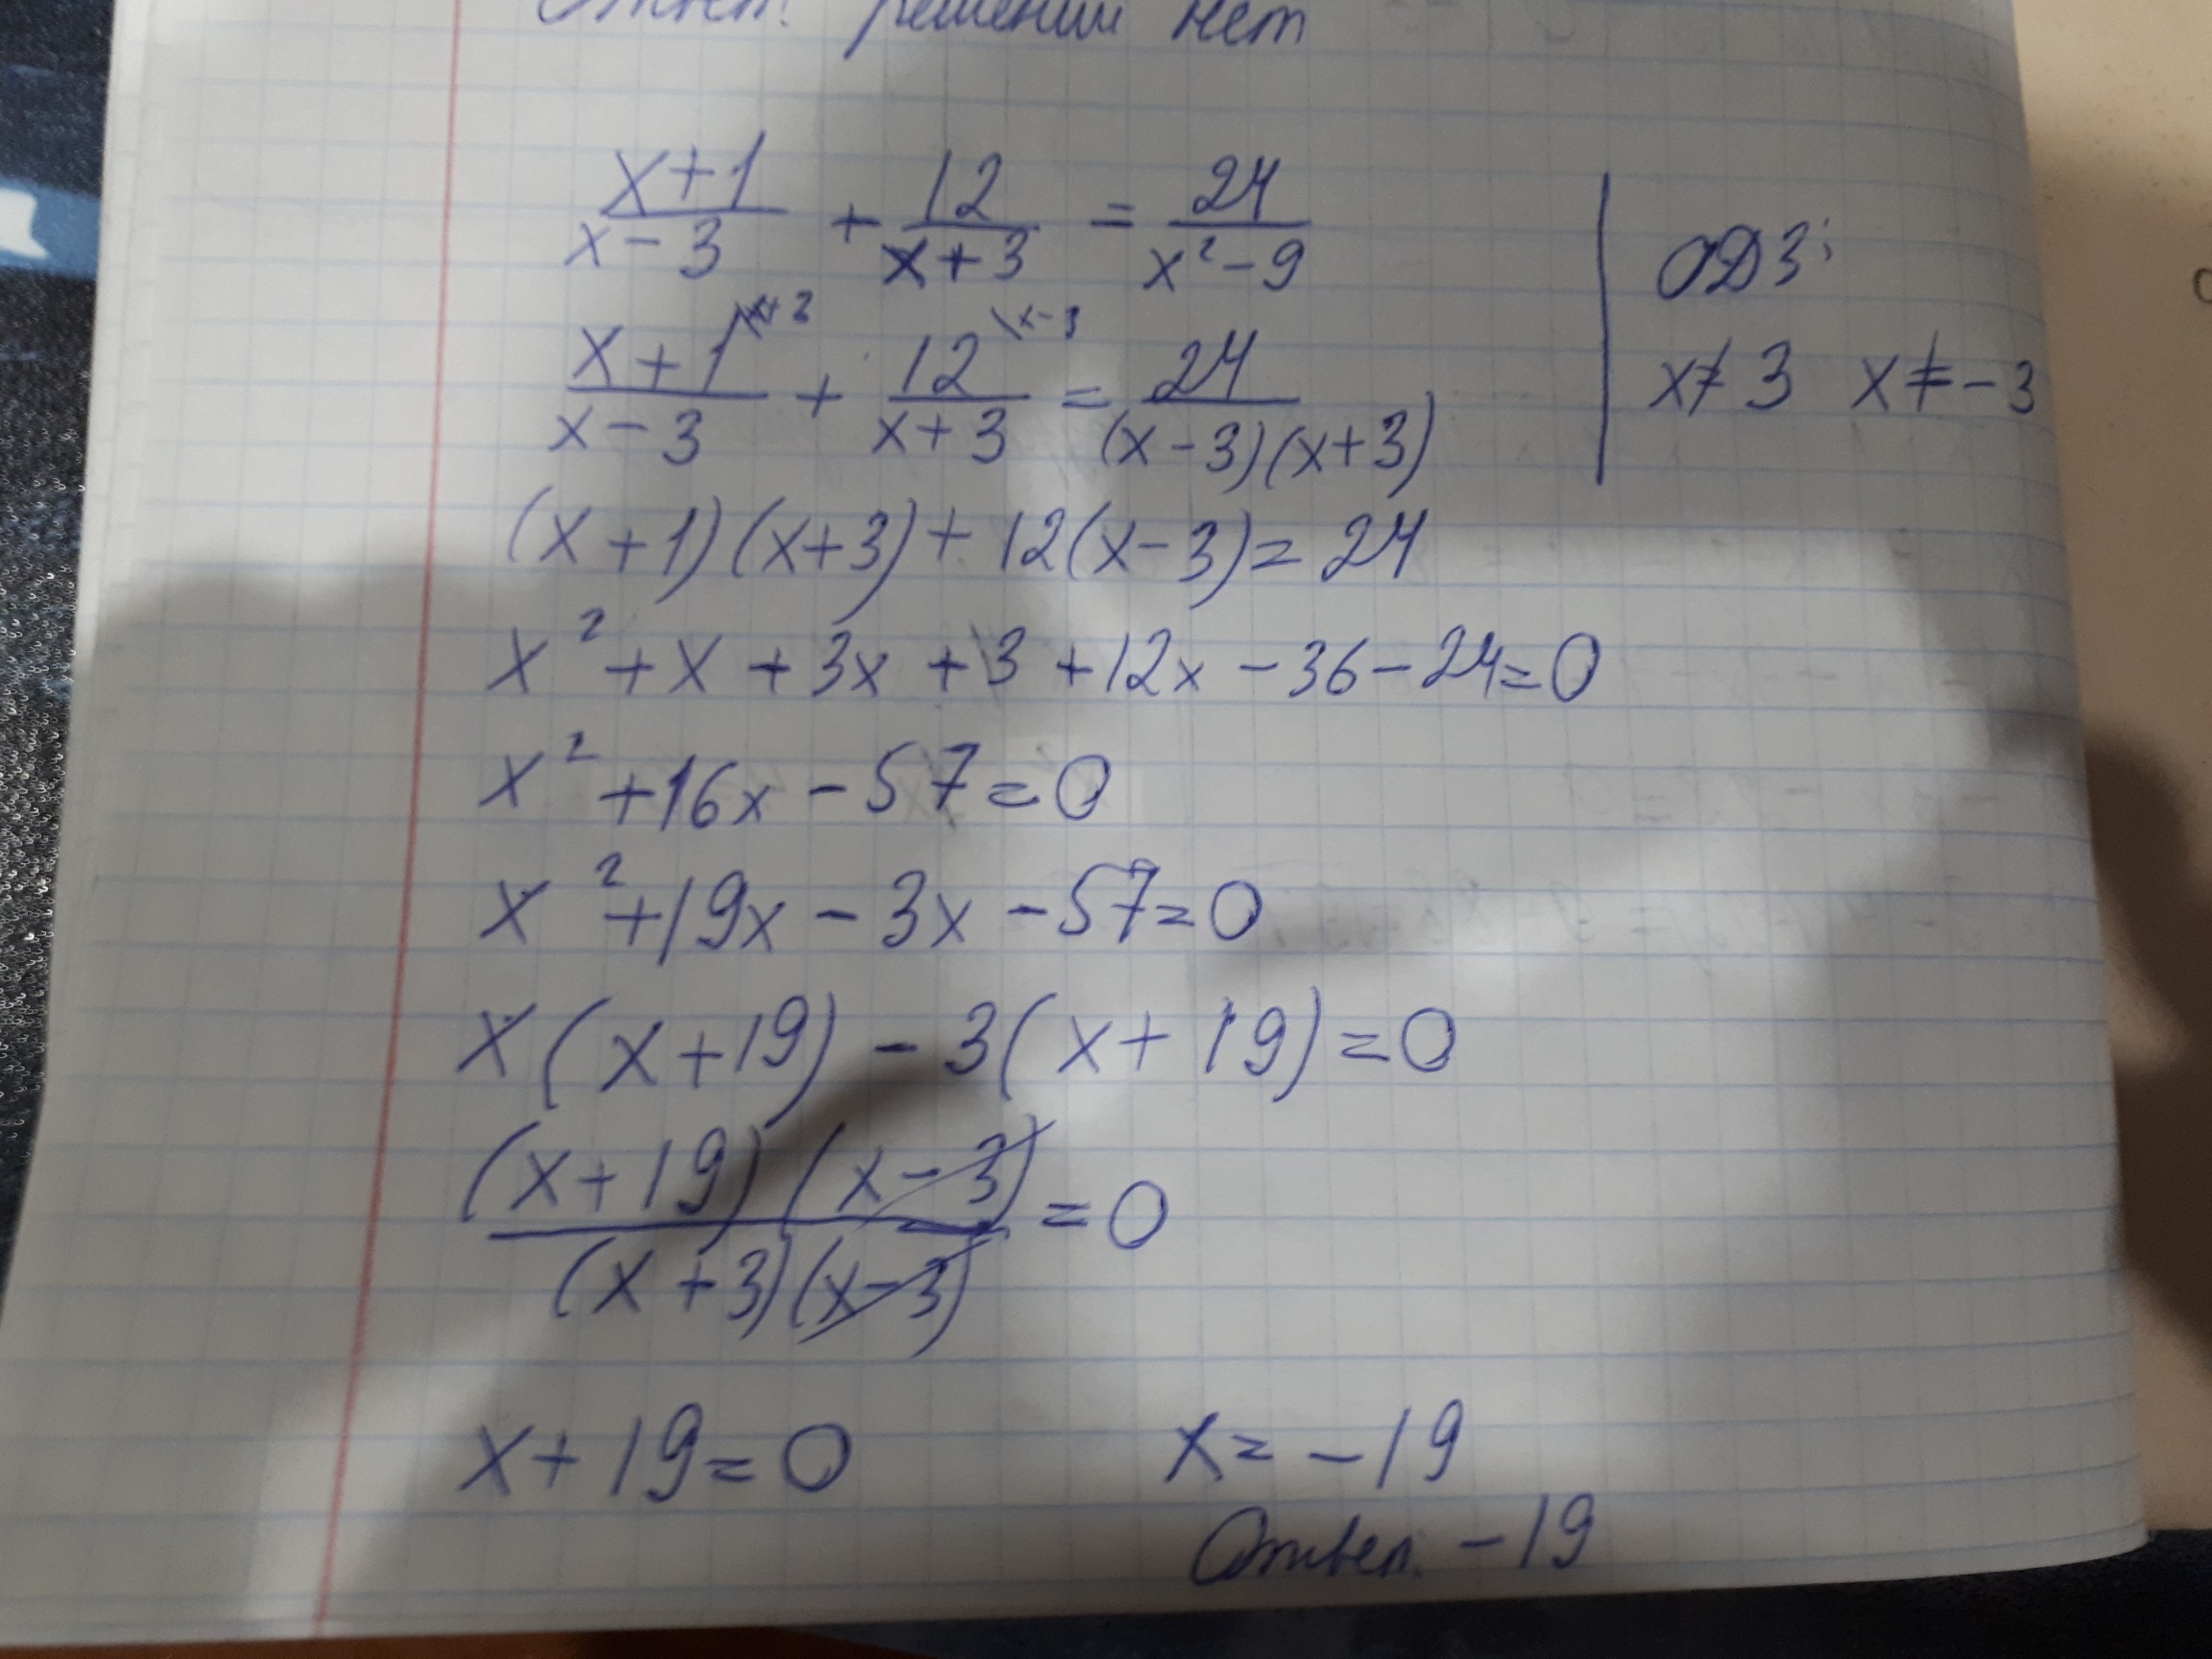 Ответ: решений нет
x+1/x-3 + 12/x+3 = 24/x²-9
ОДЗ:
x≠3 x≠-3
x+1\x+3/x-3 + 12\x-3/x+3 = 24/(x-3)(x+3)
(x+1)(x+3)+12(x-3)=24
x²+x+3x+3+12x-36-24=0
x²+16x-57=0
x²+19x-3x-57=0
x(x+19)-3(x+19)=0
(x+19)(x-3)/(x+3)(x-3)=0
x+19=0 x=-19
Ответ. -19